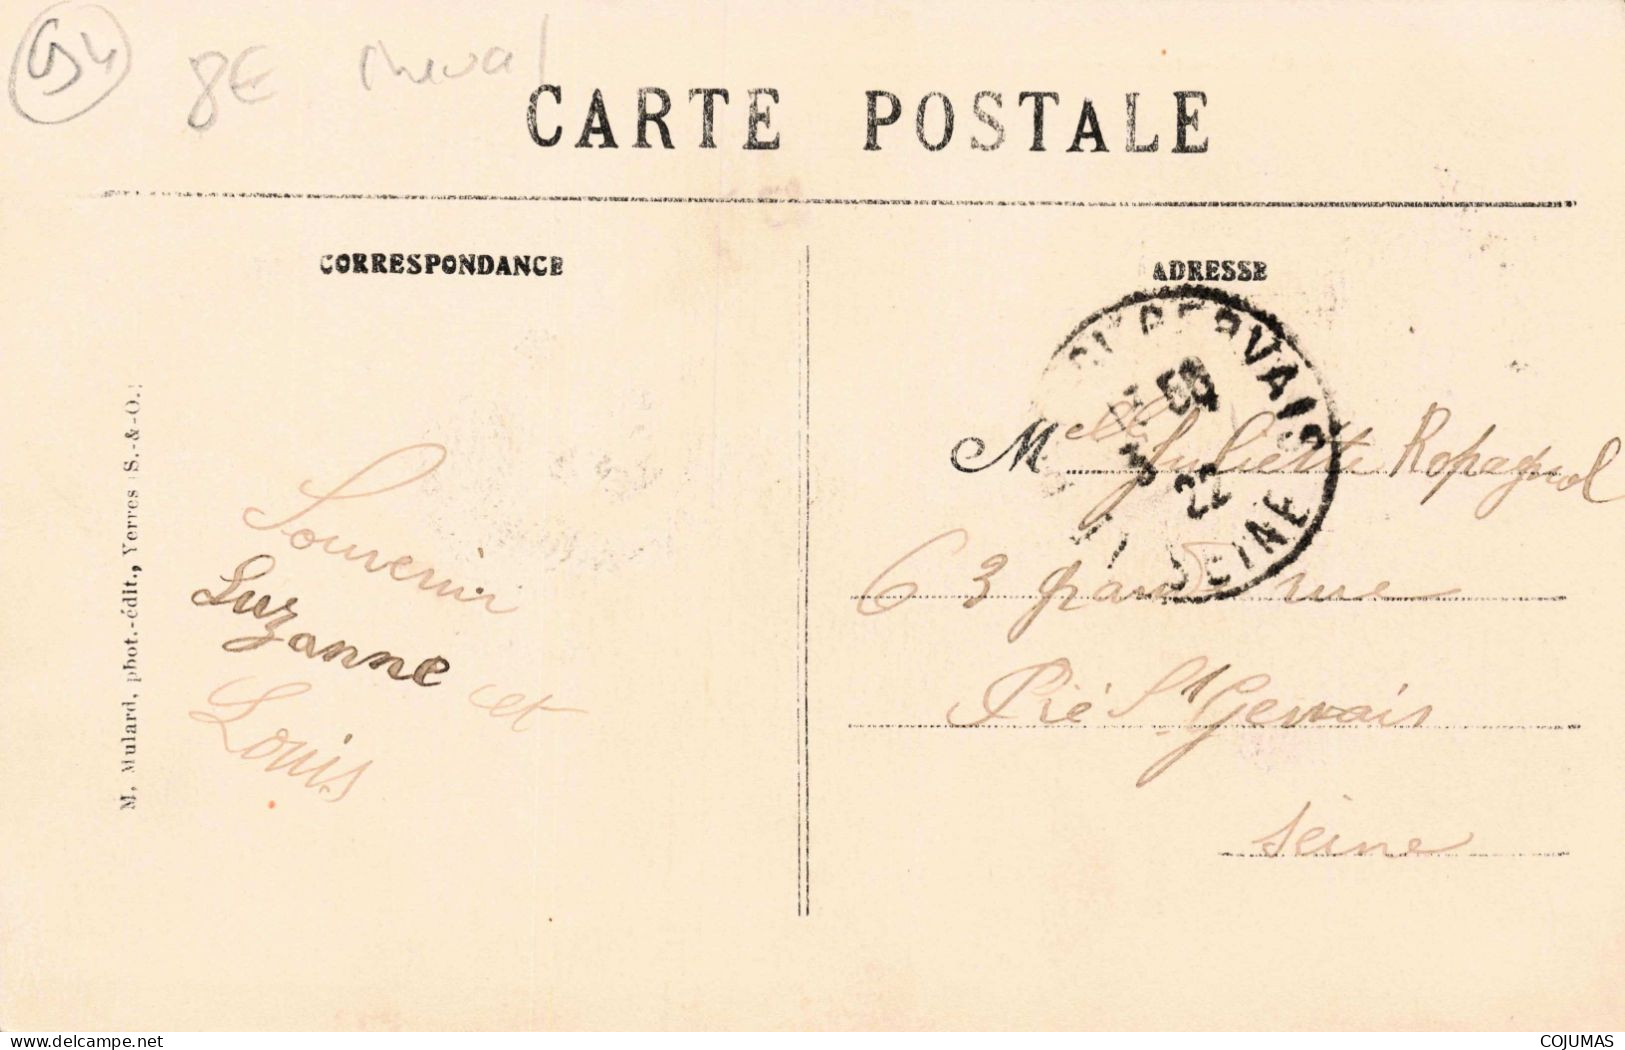 94
8€ cheval
CARTE POSTALE
CORRESPONDANCE
ADRESSE
M. Mulard, phot.-édit., Yerres (S.-&-O.)
Souvenir
Suzanne et
Louis
GERVAIS
22
SEINE
Mlle Juliette Ropagnol
63 grand rue
Pré St Gervais
Seine
delcampe.net
COJUMAS